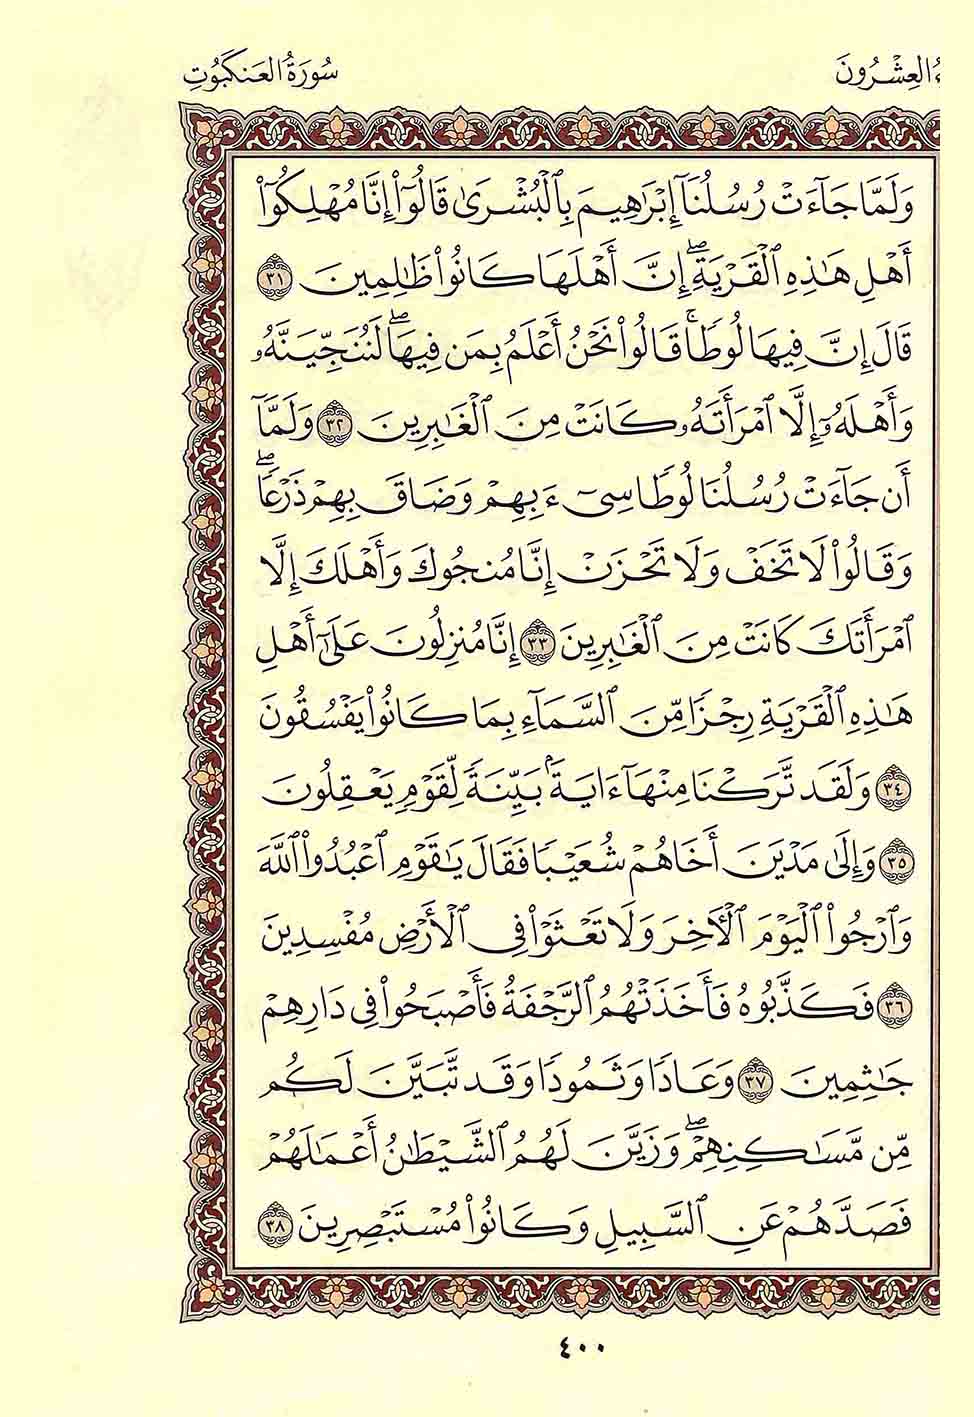 ءُ العِشْرُونَ
سُورَةُ العَنكَبُوتِ
وَلَمَّا جَآءَتْ رُسُلُنَآ إِبْرَٰهِيمَ بِٱلْبُشْرَىٰ قَالُوٓا۟ إِنَّا مُهْلِكُوٓا۟
أَهْلِ هَٰذِهِ ٱلْقَرْيَةِ ۖ إِنَّ أَهْلَهَا كَانُوا۟ ظَٰلِمِينَ ٣١
قَالَ إِنَّ فِيهَا لُوطًا ۚ قَالُوا۟ نَحْنُ أَعْلَمُ بِمَن فِيهَا ۖ لَنُنَجِّيَنَّهُۥ
وَأَهْلَهُۥٓ إِلَّا ٱمْرَأَتَهُۥ كَانَتْ مِنَ ٱلْغَٰبِرِينَ ٣٢ وَلَمَّآ
أَن جَآءَتْ رُسُلُنَا لُوطًا سِىٓءَ بِهِمْ وَضَاقَ بِهِمْ ذَرْعًا ۖ
وَقَالُوا۟ لَا تَخَفْ وَلَا تَحْزَنْ إِنَّا مُنَجُّوكَ وَأَهْلَكَ إِلَّا
ٱمْرَأَتَكَ كَانَتْ مِنَ ٱلْغَٰبِرِينَ ٣٣ إِنَّا مُنزِلُونَ عَلَىٰٓ أَهْلِ
هَٰذِهِ ٱلْقَرْيَةِ رِجْزًا مِّنَ ٱلسَّمَآءِ بِمَا كَانُوا۟ يَفْسُقُونَ
٣٤ وَلَقَد تَّرَكْنَا مِنْهَآ ءَايَةًۢ بَيِّنَةً لِّقَوْمٍ يَعْقِلُونَ
٣٥ وَإِلَىٰ مَدْيَنَ أَخَاهُمْ شُعَيْبًا فَقَالَ يَٰقَوْمِ ٱعْبُدُوا۟ ٱللَّهَ
وَٱرْجُوا۟ ٱلْيَوْمَ ٱلْءَاخِرَ وَلَا تَعْثَوْا۟ فِى ٱلْأَرْضِ مُفْسِدِينَ
٣٦ فَكَذَّبُوهُ فَأَخَذَتْهُمُ ٱلرَّجْفَةُ فَأَصْبَحُوا۟ فِى دَارِهِمْ
جَٰثِمِينَ ٣٧ وَعَادًا وَثَمُودَا۟ وَقَد تَّبَيَّنَ لَكُم
مِّن مَّسَٰكِنِهِمْ ۖ وَزَيَّنَ لَهُمُ ٱلشَّيْطَٰنُ أَعْمَٰلَهُمْ
فَصَدَّهُمْ عَنِ ٱلسَّبِيلِ وَكَانُوا۟ مُسْتَبْصِرِينَ ٣٨
٤٠٠